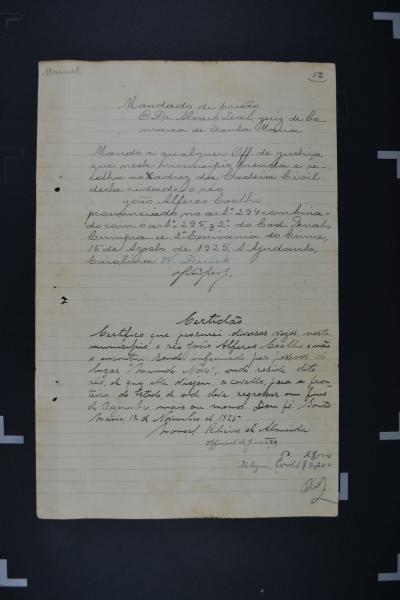 Manoel
52
Mandado de prisão
O Dr. Alvaro Leal, juiz de Co-
marca de Santa Maria
Manda a qualquer Off. de justiça
que neste municipio prenda e re-
colha ao Xadrez da Cadeia Civil
desta cidade o réo
João Alferes Coelho
pronunciado no art. 294 combina-
do com o art. 295, § 2º do Cod. Penal.
Cumpra se. 2º Escrivania do Crime,
15 de Agosto de 1925. A Ajudante,
Carolina W. Druck
Certidão
Certifico que procurei diversas vezes, neste
municipio o réo João Alferes Coelho e não
o encontrei. Sendo informado por pessoas do
lugar "Mundo Novo", onde reside dito
réo, de que elle viajou, a cavallo, para a fron-
teira do Estado, de onde deve regressar em fins
de Dezembro mais ou menos. Dou fé. Santa
Maria 12 de Novembro de 1925
Manoel Ribeiro de Almeida
Official de Justiça